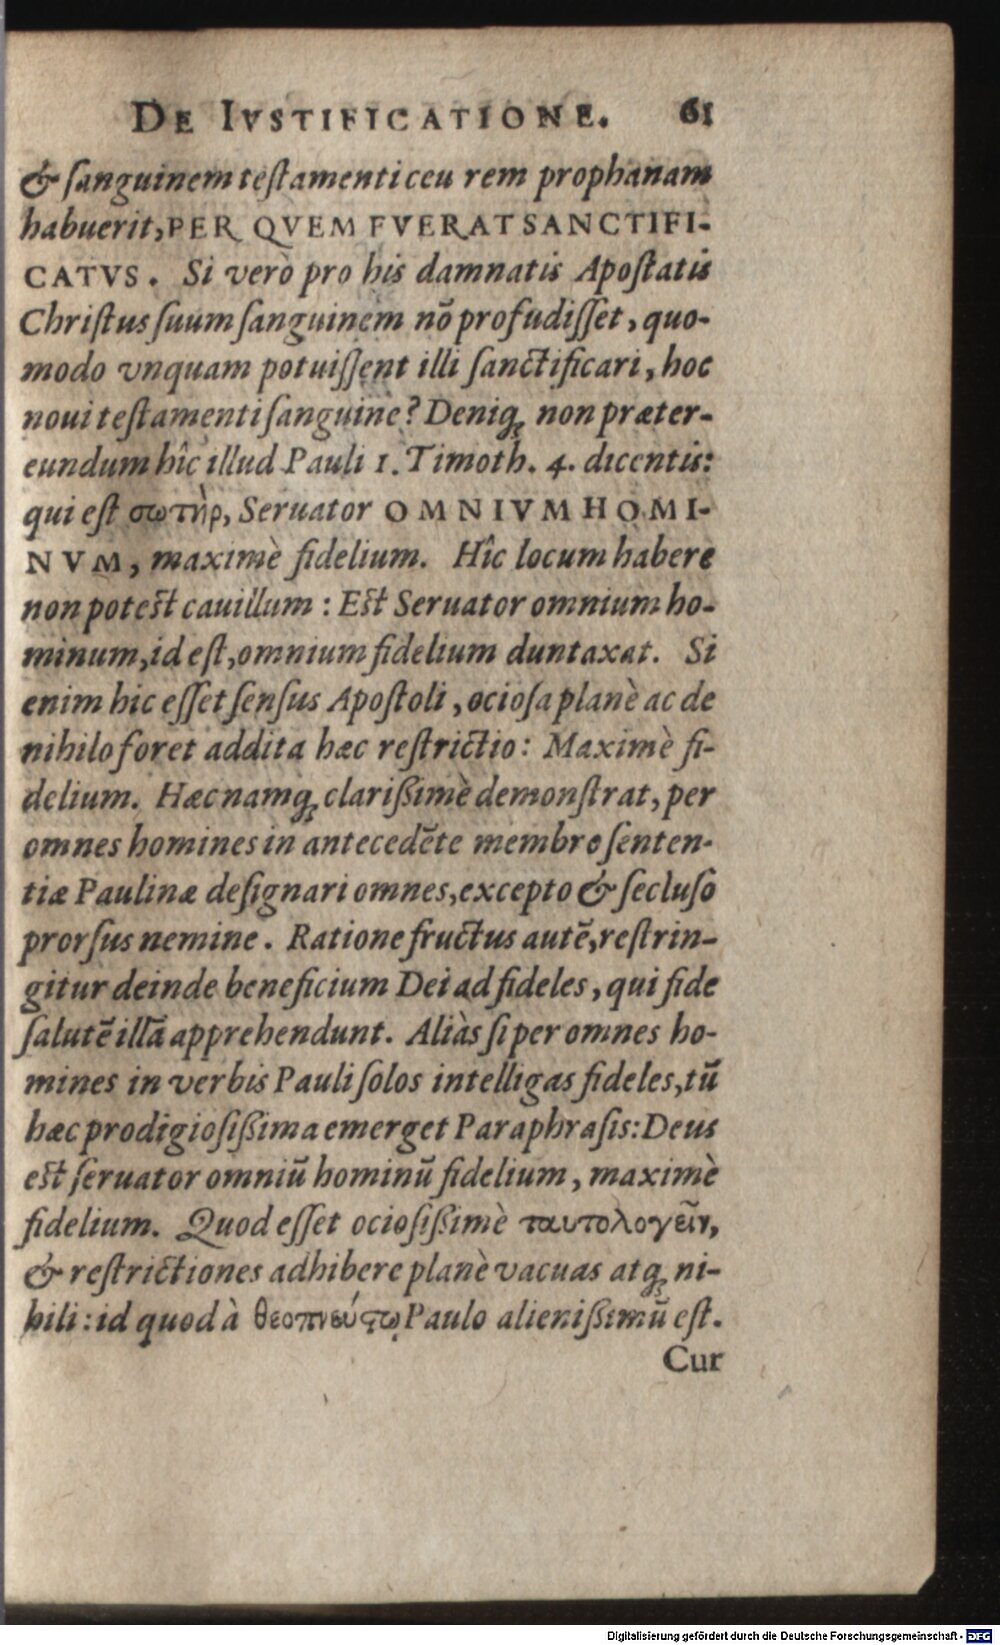 DE IVSTIFICATIONE. 61
& sanguinem testamenti ceu rem prophanam
habuerit, PER QVEM FVERAT SANCTIFI-
CATVS. Si verò pro his damnatis Apostatis
Christus suum sanguinem nō profudisset, quo-
modo vnquam potuissent illi sanctificari, hoc
noui testamenti sanguine? Deniq; non præter-
eundum hîc illud Pauli 1. Timoth. 4. dicentis:
qui est σωτὴρ, Seruator OMNIVM HOMI-
NVM, maximè fidelium. Hîc locum habere
non potest cauillum: Est Seruator omnium ho-
minum, id est, omnium fidelium duntaxat. Si
enim hic esset sensus Apostoli, ociosa planè ac de
nihilo foret addita hæc restrictio: Maximè fi-
delium. Hæc namq; clarißimè demonstrat, per
omnes homines in antecedēte membro senten-
tiæ Paulinæ designari omnes, excepto & secluso
prorsus nemine. Ratione fructus autē, restrin-
gitur deinde beneficium Dei ad fideles, qui fide
salutē illā apprehendunt. Aliàs si per omnes ho-
mines in verbis Pauli solos intelligas fideles, tū
hæc prodigiosißima emerget Paraphrasis: Deus
est seruator omniū hominū fidelium, maximè
fidelium. Quod esset ociosißimè ταυτολογεῖν,
& restrictiones adhibere planè vacuas atq; ni-
hili: id quod à θεοπνεύστῳ Paulo alienißimū est.
Cur
Digitalisierung gefördert durch die Deutsche Forschungsgemeinschaft - DFG